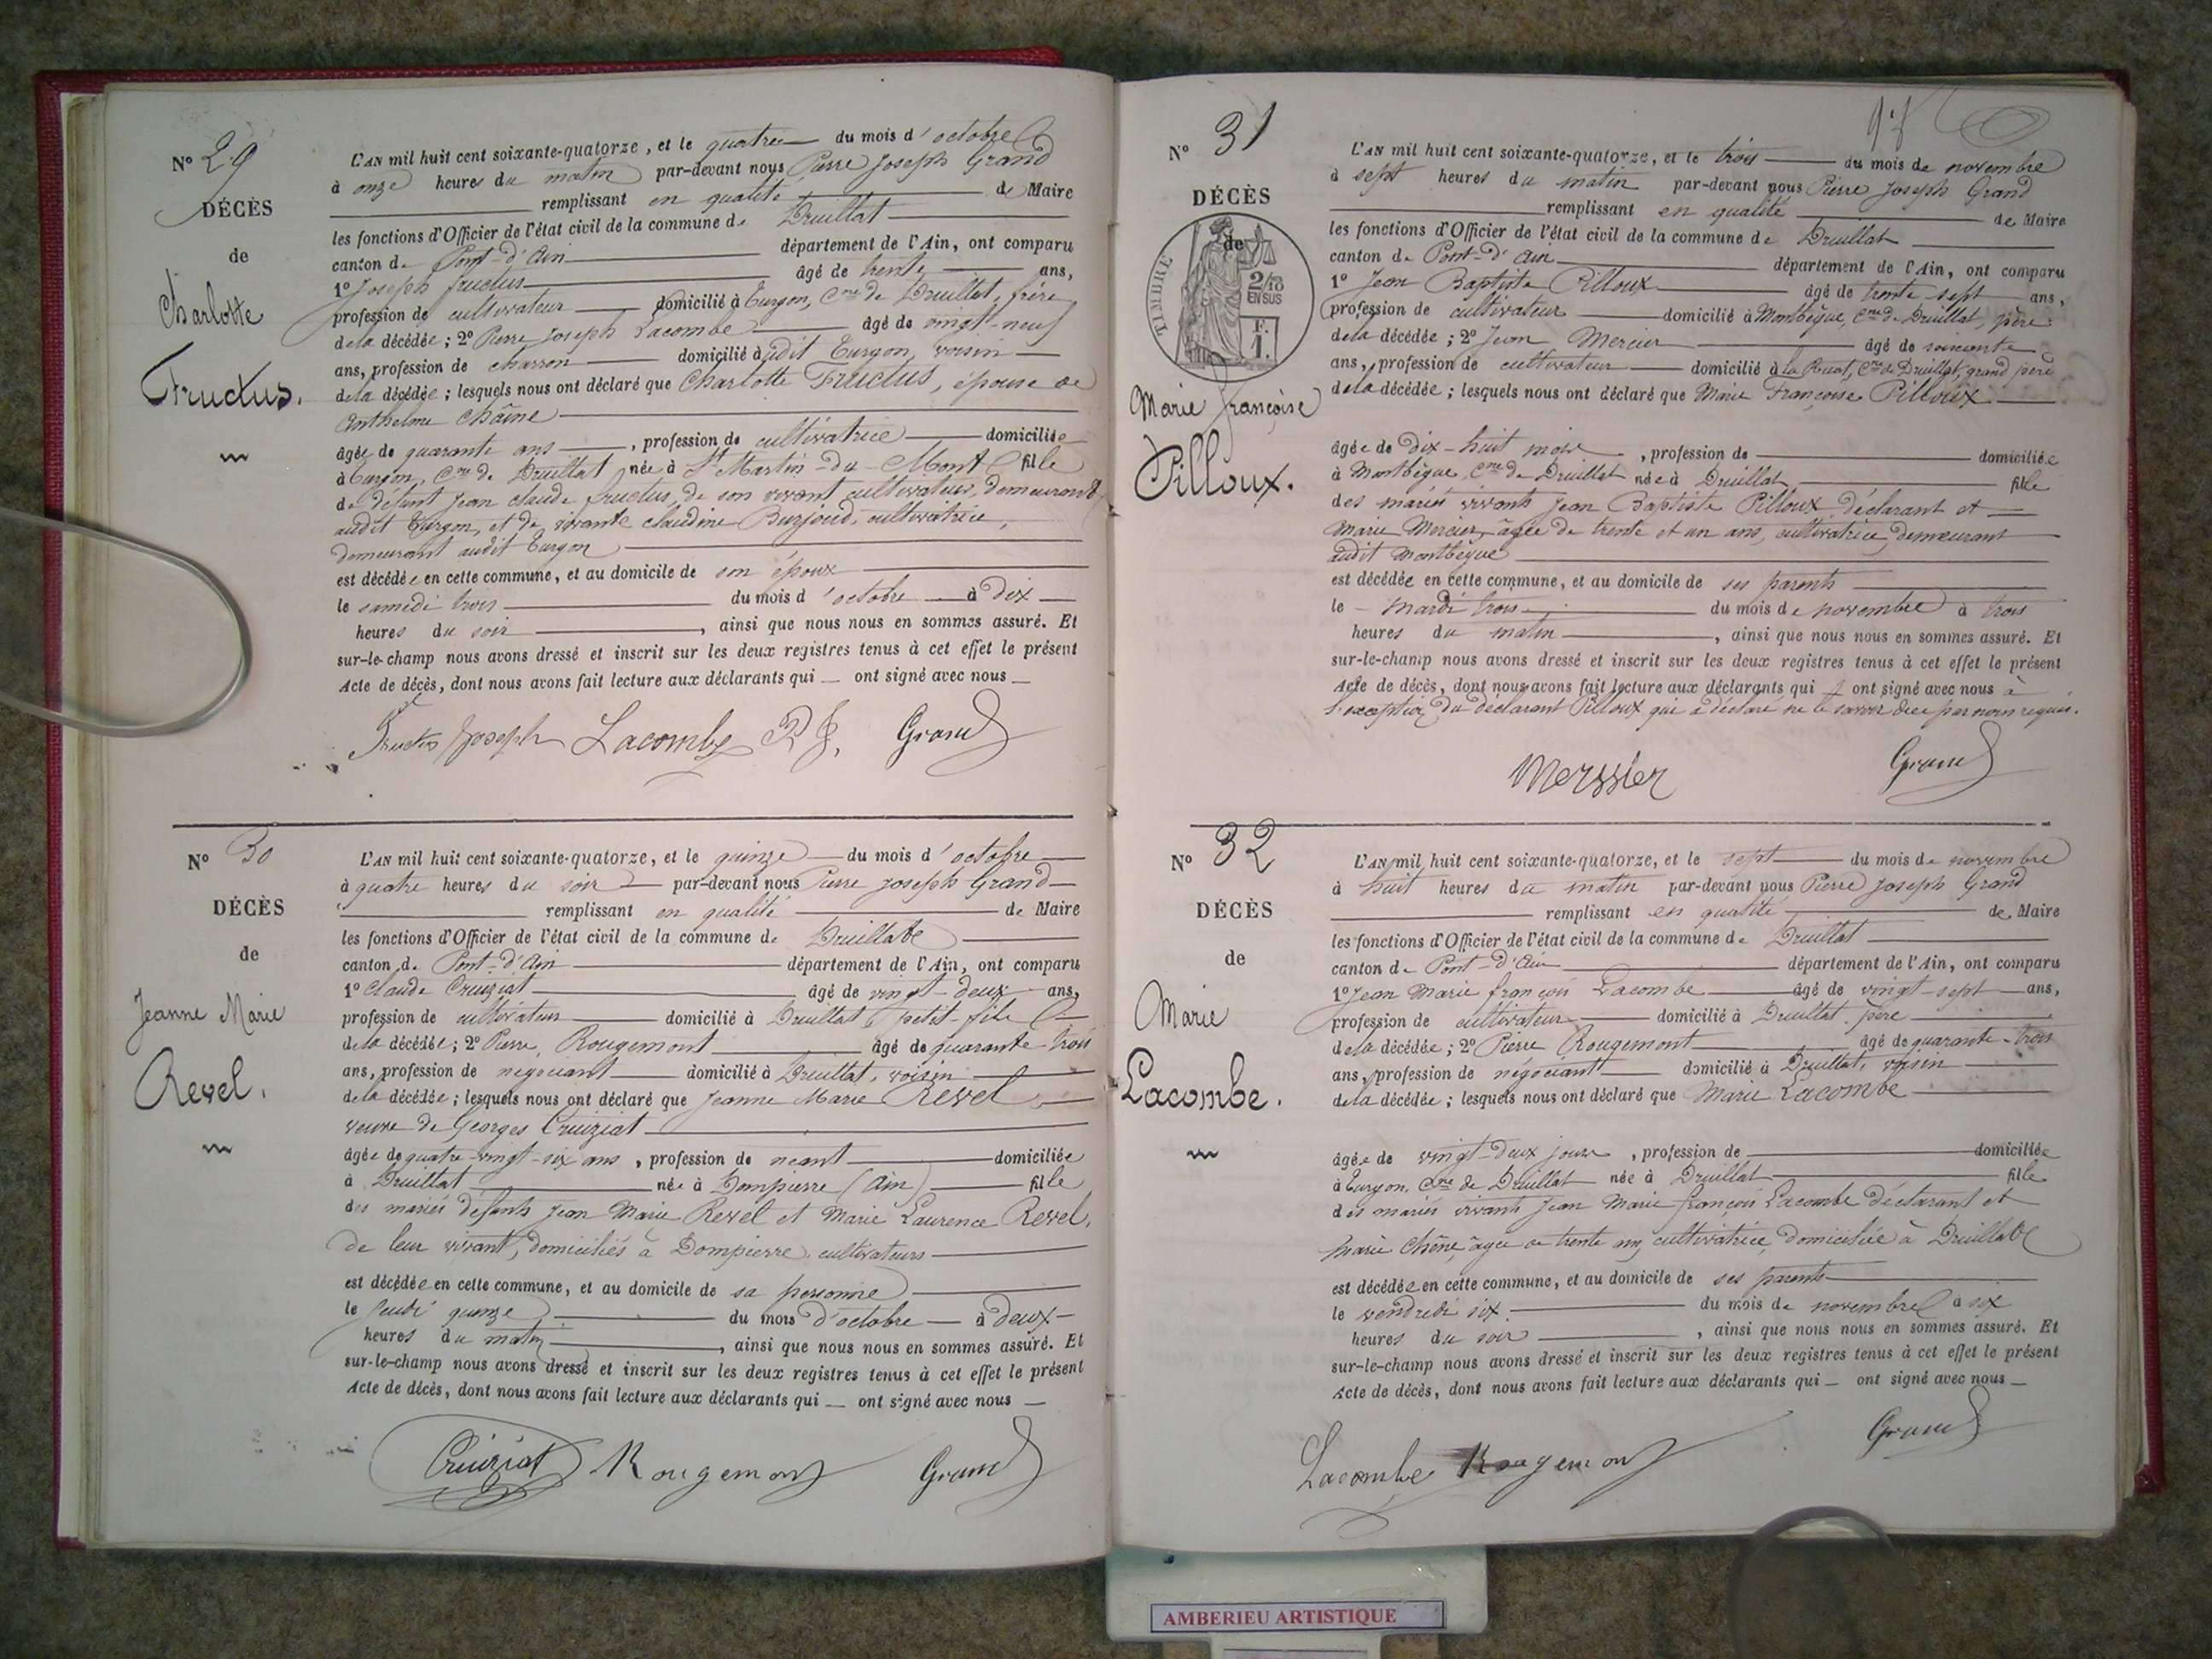 N° 29
DÉCÈS
de
Charlotte
Fructus.
L'AN mil huit cent soixante-quatorze, et le quatre du mois d'octobre
à onze heures du matin par-devant nous Pierre Joseph Grand
remplissant en qualité de Maire
les fonctions d'Officier de l'état civil de la commune de Druillat
canton de Pont-d'Ain département de l'Ain, ont comparu
1° Joseph fructus âgé de trente ans,
profession de cultivateur domicilié à Turgon, Cne de Druillat, frère
de la décédée ; 2° Pierre Joseph Lacombe âgé de vingt-neuf
ans, profession de charron domicilié à dit Turgon, voisin
de la décédée ; lesquels nous ont déclaré que Charlotte Fructus, épouse de
Anthelme Chaîne
âgée de quarante ans, profession de cultivatrice domiciliée
à Turgon, Cne de Druillat née à St Martin-du-Mont fille
de défunt Jean Claude fructus, de son vivant cultivateur, demeurant
audit Turgon, et de vivante Claudine Burjoud, cultivatrice,
demeurant audit Turgon
est décédée en cette commune, et au domicile de son époux
le samedi trois du mois d'octobre à dix
heures du soir, ainsi que nous nous en sommes assuré. Et
sur-le-champ nous avons dressé et inscrit sur les deux registres tenus à cet effet le présent
Acte de décès, dont nous avons fait lecture aux déclarants qui ont signé avec nous
Fructus Joseph Lacombe P J. Grand
N° 30
DÉCÈS
de
Jeanne Marie
Revel.
L'AN mil huit cent soixante-quatorze, et le quinze du mois d'octobre
à quatre heures du soir par-devant nous Pierre Joseph Grand
remplissant en qualité de Maire
les fonctions d'Officier de l'état civil de la commune de Druillat
canton de Pont-d'Ain département de l'Ain, ont comparu
1° Claude Cruiziat âgé de vingt-deux ans,
profession de cultivateur domicilié à Druillat, petit-fils
de la décédée ; 2° Pierre Rougemont âgé de quarante-trois
ans, profession de négociant domicilié à Druillat, voisin
de la décédée ; lesquels nous ont déclaré que Jeanne Marie Revel
veuve de Georges Cruiziat
âgée de quatre-vingt-six ans, profession de néant domiciliée
à Druillat née à Dompierre (Ain) fille
des mariés défunts Jean Marie Revel et Marie Laurence Revel,
de leur vivant, domiciliés à Dompierre cultivateurs
est décédée en cette commune, et au domicile de sa personne
le Jeudi quinze du mois d'octobre à deux
heures du matin, ainsi que nous nous en sommes assuré. Et
sur-le-champ nous avons dressé et inscrit sur les deux registres tenus à cet effet le présent
Acte de décès, dont nous avons fait lecture aux déclarants qui ont signé avec nous
Cruiziat Rougemont Grand
N° 31
DÉCÈS
de
TIMBRE
2/10
EN SUS
F.
1.
Marie Françoise
Pilloux.
L'AN mil huit cent soixante-quatorze, et le trois du mois de novembre
à sept heures du matin par-devant nous Pierre Joseph Grand
remplissant en qualité de Maire
les fonctions d'Officier de l'état civil de la commune de Druillat
canton de Pont-d'Ain département de l'Ain, ont comparu
1° Jean Baptiste Pilloux âgé de trente-sept ans,
profession de cultivateur domicilié à Montbègue, Cne de Druillat, père
de la décédée ; 2° Jean Mercier âgé de soixante
ans, profession de cultivateur domicilié à la Ruat, Cne de Druillat, grand père
de la décédée ; lesquels nous ont déclaré que Marie Françoise Pilloux
âgée de dix-huit mois, profession de domiciliée
à Montbègue, Cne de Druillat née à Druillat fille
des mariés vivants Jean Baptiste Pilloux déclarant et
Marie Mercier, âgée de trente et un ans, cultivatrice, demeurant
audit Montbègue
est décédée en cette commune, et au domicile de ses parents
le mardi trois du mois de novembre à trois
heures du matin, ainsi que nous nous en sommes assuré. Et
sur-le-champ nous avons dressé et inscrit sur les deux registres tenus à cet effet le présent
Acte de décès, dont nous avons fait lecture aux déclarants qui ont signé avec nous à
l'exception du déclarant Pilloux qui a déclaré ne le savoir de ce par nous requis.
Merssier Grand
N° 32
DÉCÈS
de
Marie
Lacombe.
L'AN mil huit cent soixante-quatorze, et le sept du mois de novembre
à huit heures du matin par-devant nous Pierre Joseph Grand
remplissant en qualité de Maire
les fonctions d'Officier de l'état civil de la commune de Druillat
canton de Pont-d'Ain département de l'Ain, ont comparu
1° Jean Marie françois Lacombe âgé de vingt-sept ans,
profession de cultivateur domicilié à Druillat, père
de la décédée ; 2° Pierre Rougemont âgé de quarante-trois
ans, profession de négociant domicilié à Druillat, voisin
de la décédée ; lesquels nous ont déclaré que Marie Lacombe
âgée de vingt-deux jours, profession de domiciliée
à Turgon, Cne de Druillat née à Druillat fille
des mariés vivants Jean Marie françois Lacombe déclarant et
Marie Chêne, âgée de trente ans, cultivatrice, domiciliée à Druillat
est décédée en cette commune, et au domicile de ses parents
le vendredi six du mois de novembre à six
heures du soir, ainsi que nous nous en sommes assuré. Et
sur-le-champ nous avons dressé et inscrit sur les deux registres tenus à cet effet le présent
Acte de décès, dont nous avons fait lecture aux déclarants qui ont signé avec nous
Lacombe Rougemont Grand
AMBERIEU ARTISTIQUE